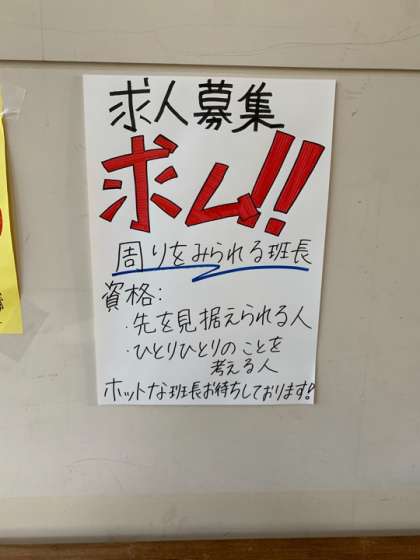 求人募集
求ム!!
周りをみられる班長
資格:
・先を見据えられる人
・ひとりひとりのことを
考える人
ホットな班長お待ちしております!